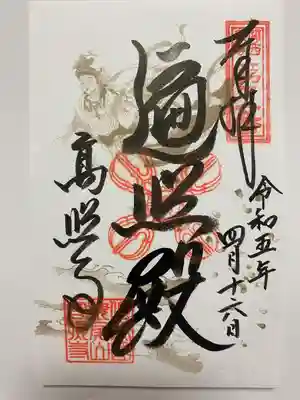 奉拝
令和五年
四月十六日
遍照殿
高照寺